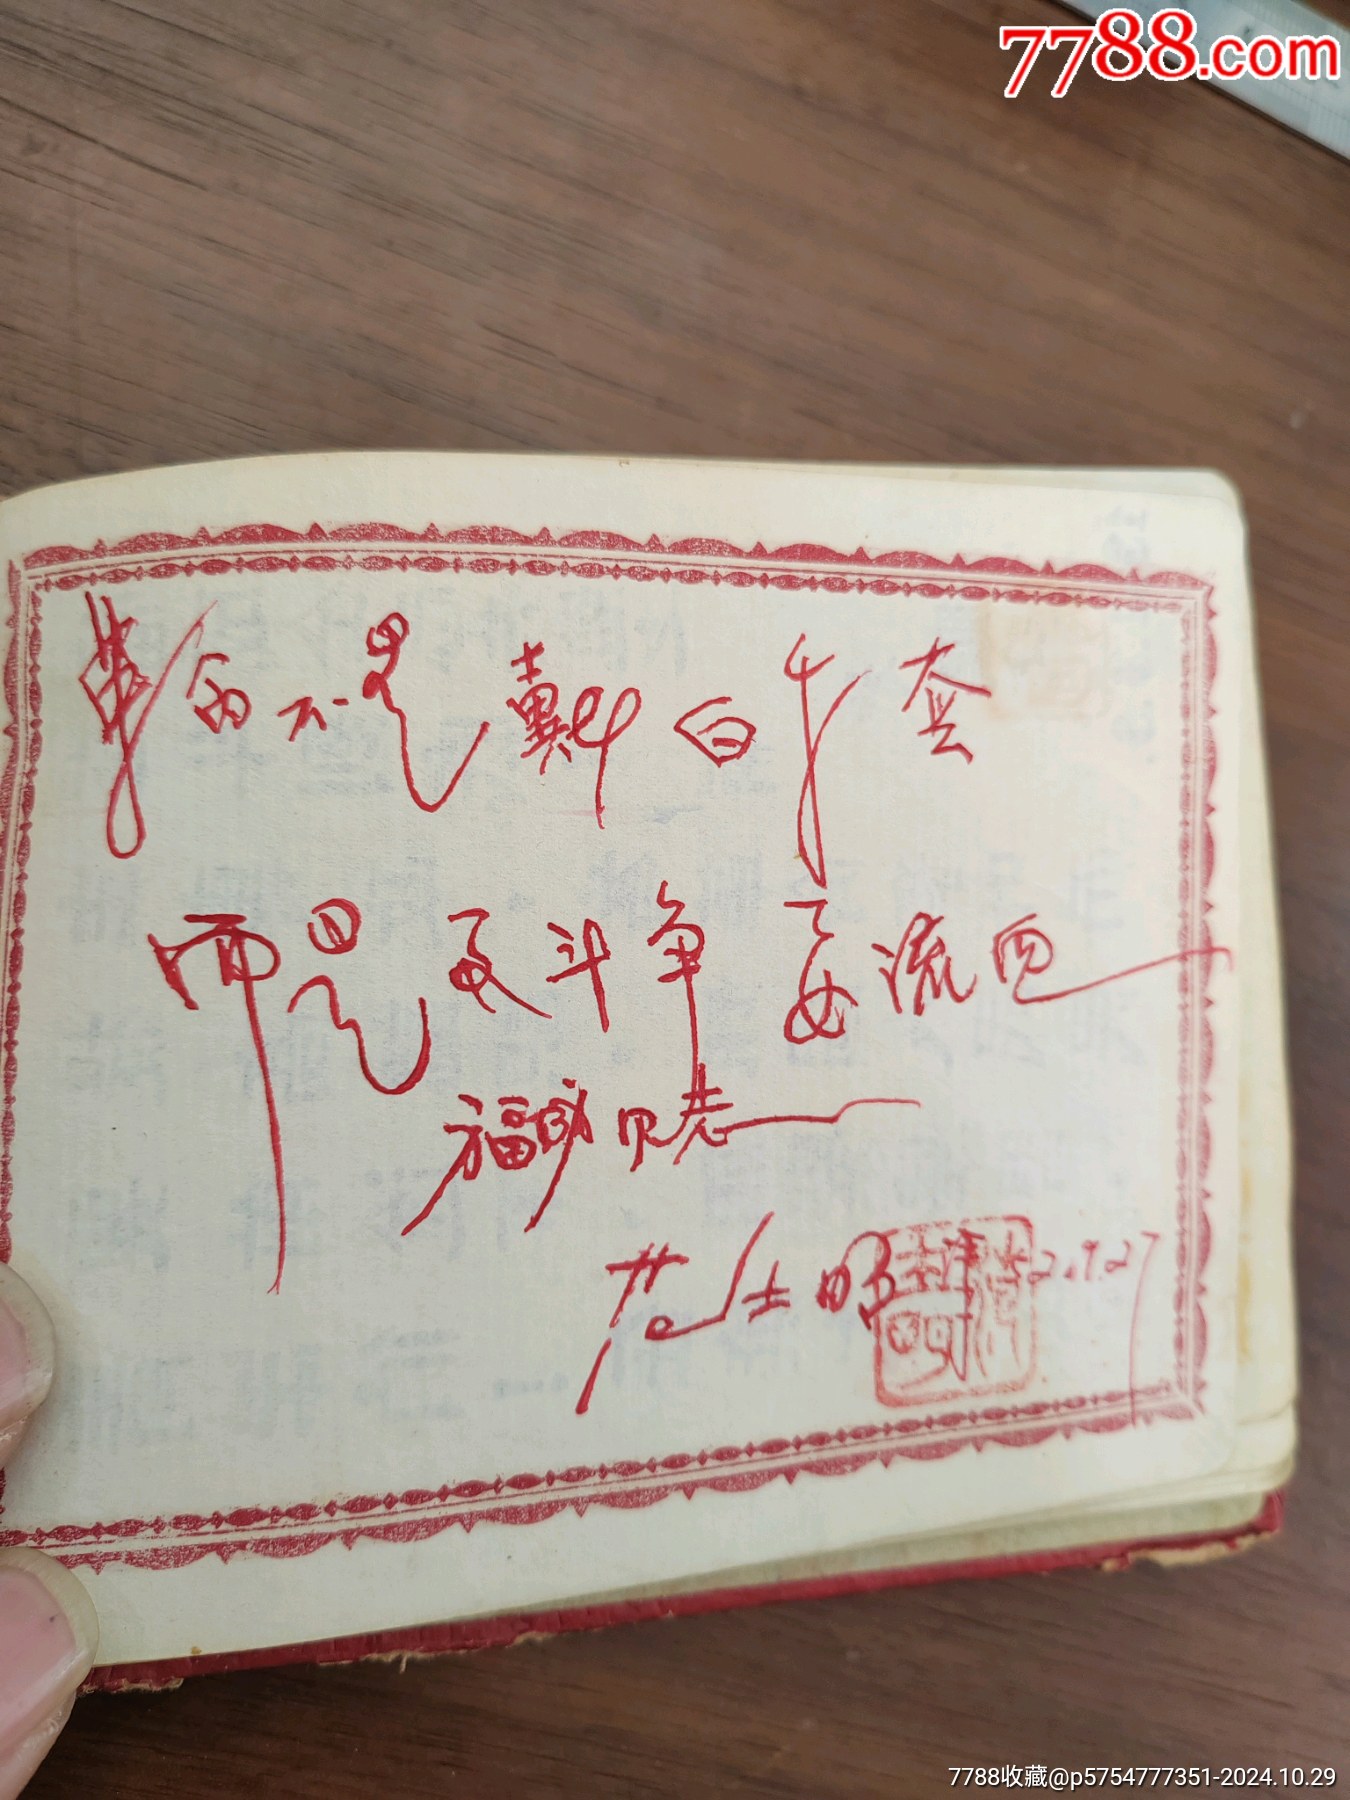 7788.com
革命不是戴白手套
而是要斗争要流血
福
范士明 2.9.27
7788收藏@p5754777351-2024.10.29